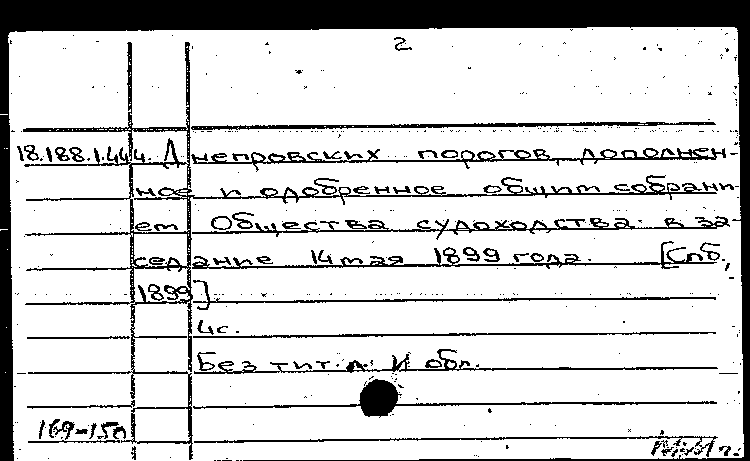 2
18.188.1.444. Днепровских порогов, дополнен-
ное и одобренное общим собрани-
ем Общества судоходства в за-
седание 14 мая 1899 года. [Спб.,
1899].
4с.
Без тит. л. и обл.
169-150